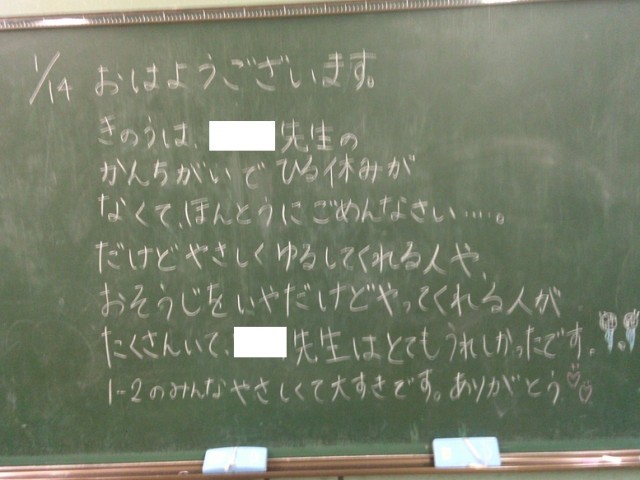 1/14 おはようございます。
きのうは、先生の
かんちがいでひる休みが
なくて、ほんとうにごめんなさい……。
だけどやさしくゆるしてくれる人や、
おそうじをいやだけどやってくれる人が
たくさんいて、先生はとてもうれしかったです。
1-2のみんなやさしくて大すきです。ありがとう♡♡